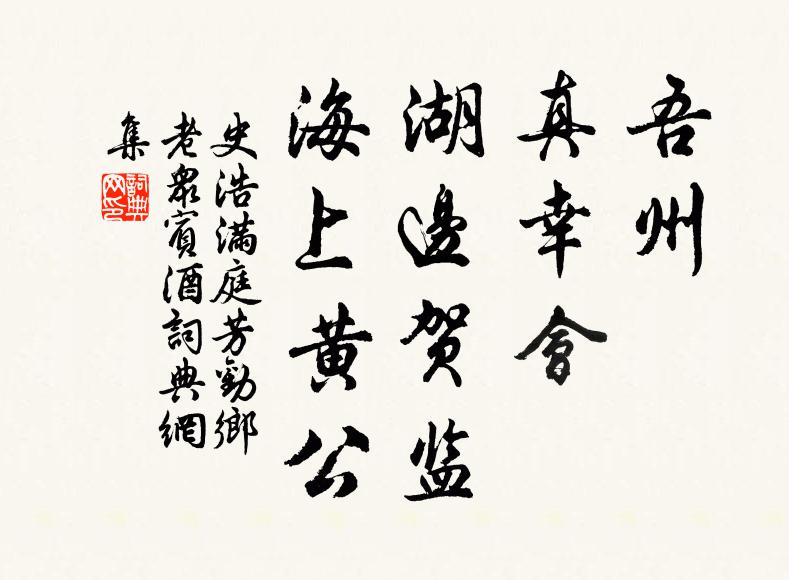 吾州
真幸會
湖邊贺监
海上黄公
史浩滿庭芳勸鄉
老衆賓酒詞典網
集
詞典网印